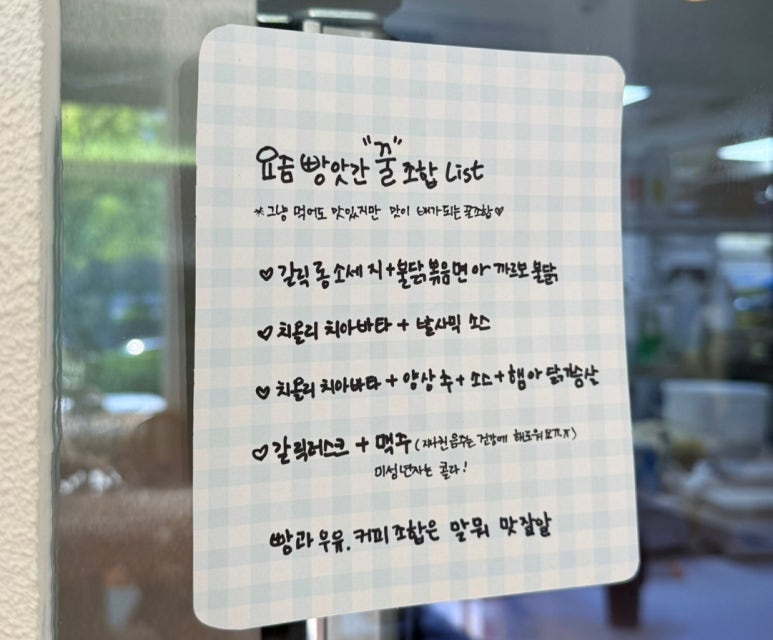 요즘 빵앗간 "꿀" 조합 List
*그냥 먹어도 맛있지만 맛이 배가되는 꿀조합♡
♡ 갈릭롱소세지+불닭볶음면 or 까르보불닭
♡ 치올리 치아바타 + 발사믹 소스
♡ 치올리 치아바타 + 양상추 + 소스 + 햄 or 닭가슴살
♡ 갈릭러스크 + 맥주 (지나친 음주는 건강에 해로워요ㅠㅠ)
미성년자는 콜라!
빵과 우유, 커피 조합은 말뭐 맛잘알